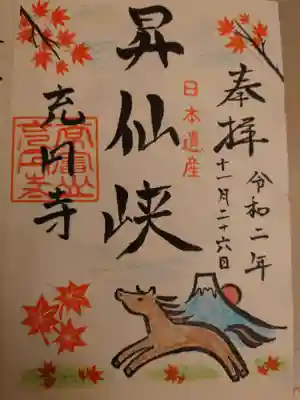 奉拝
令和二年
十一月二十六日
日本遺産
昇仙峡
充円寺